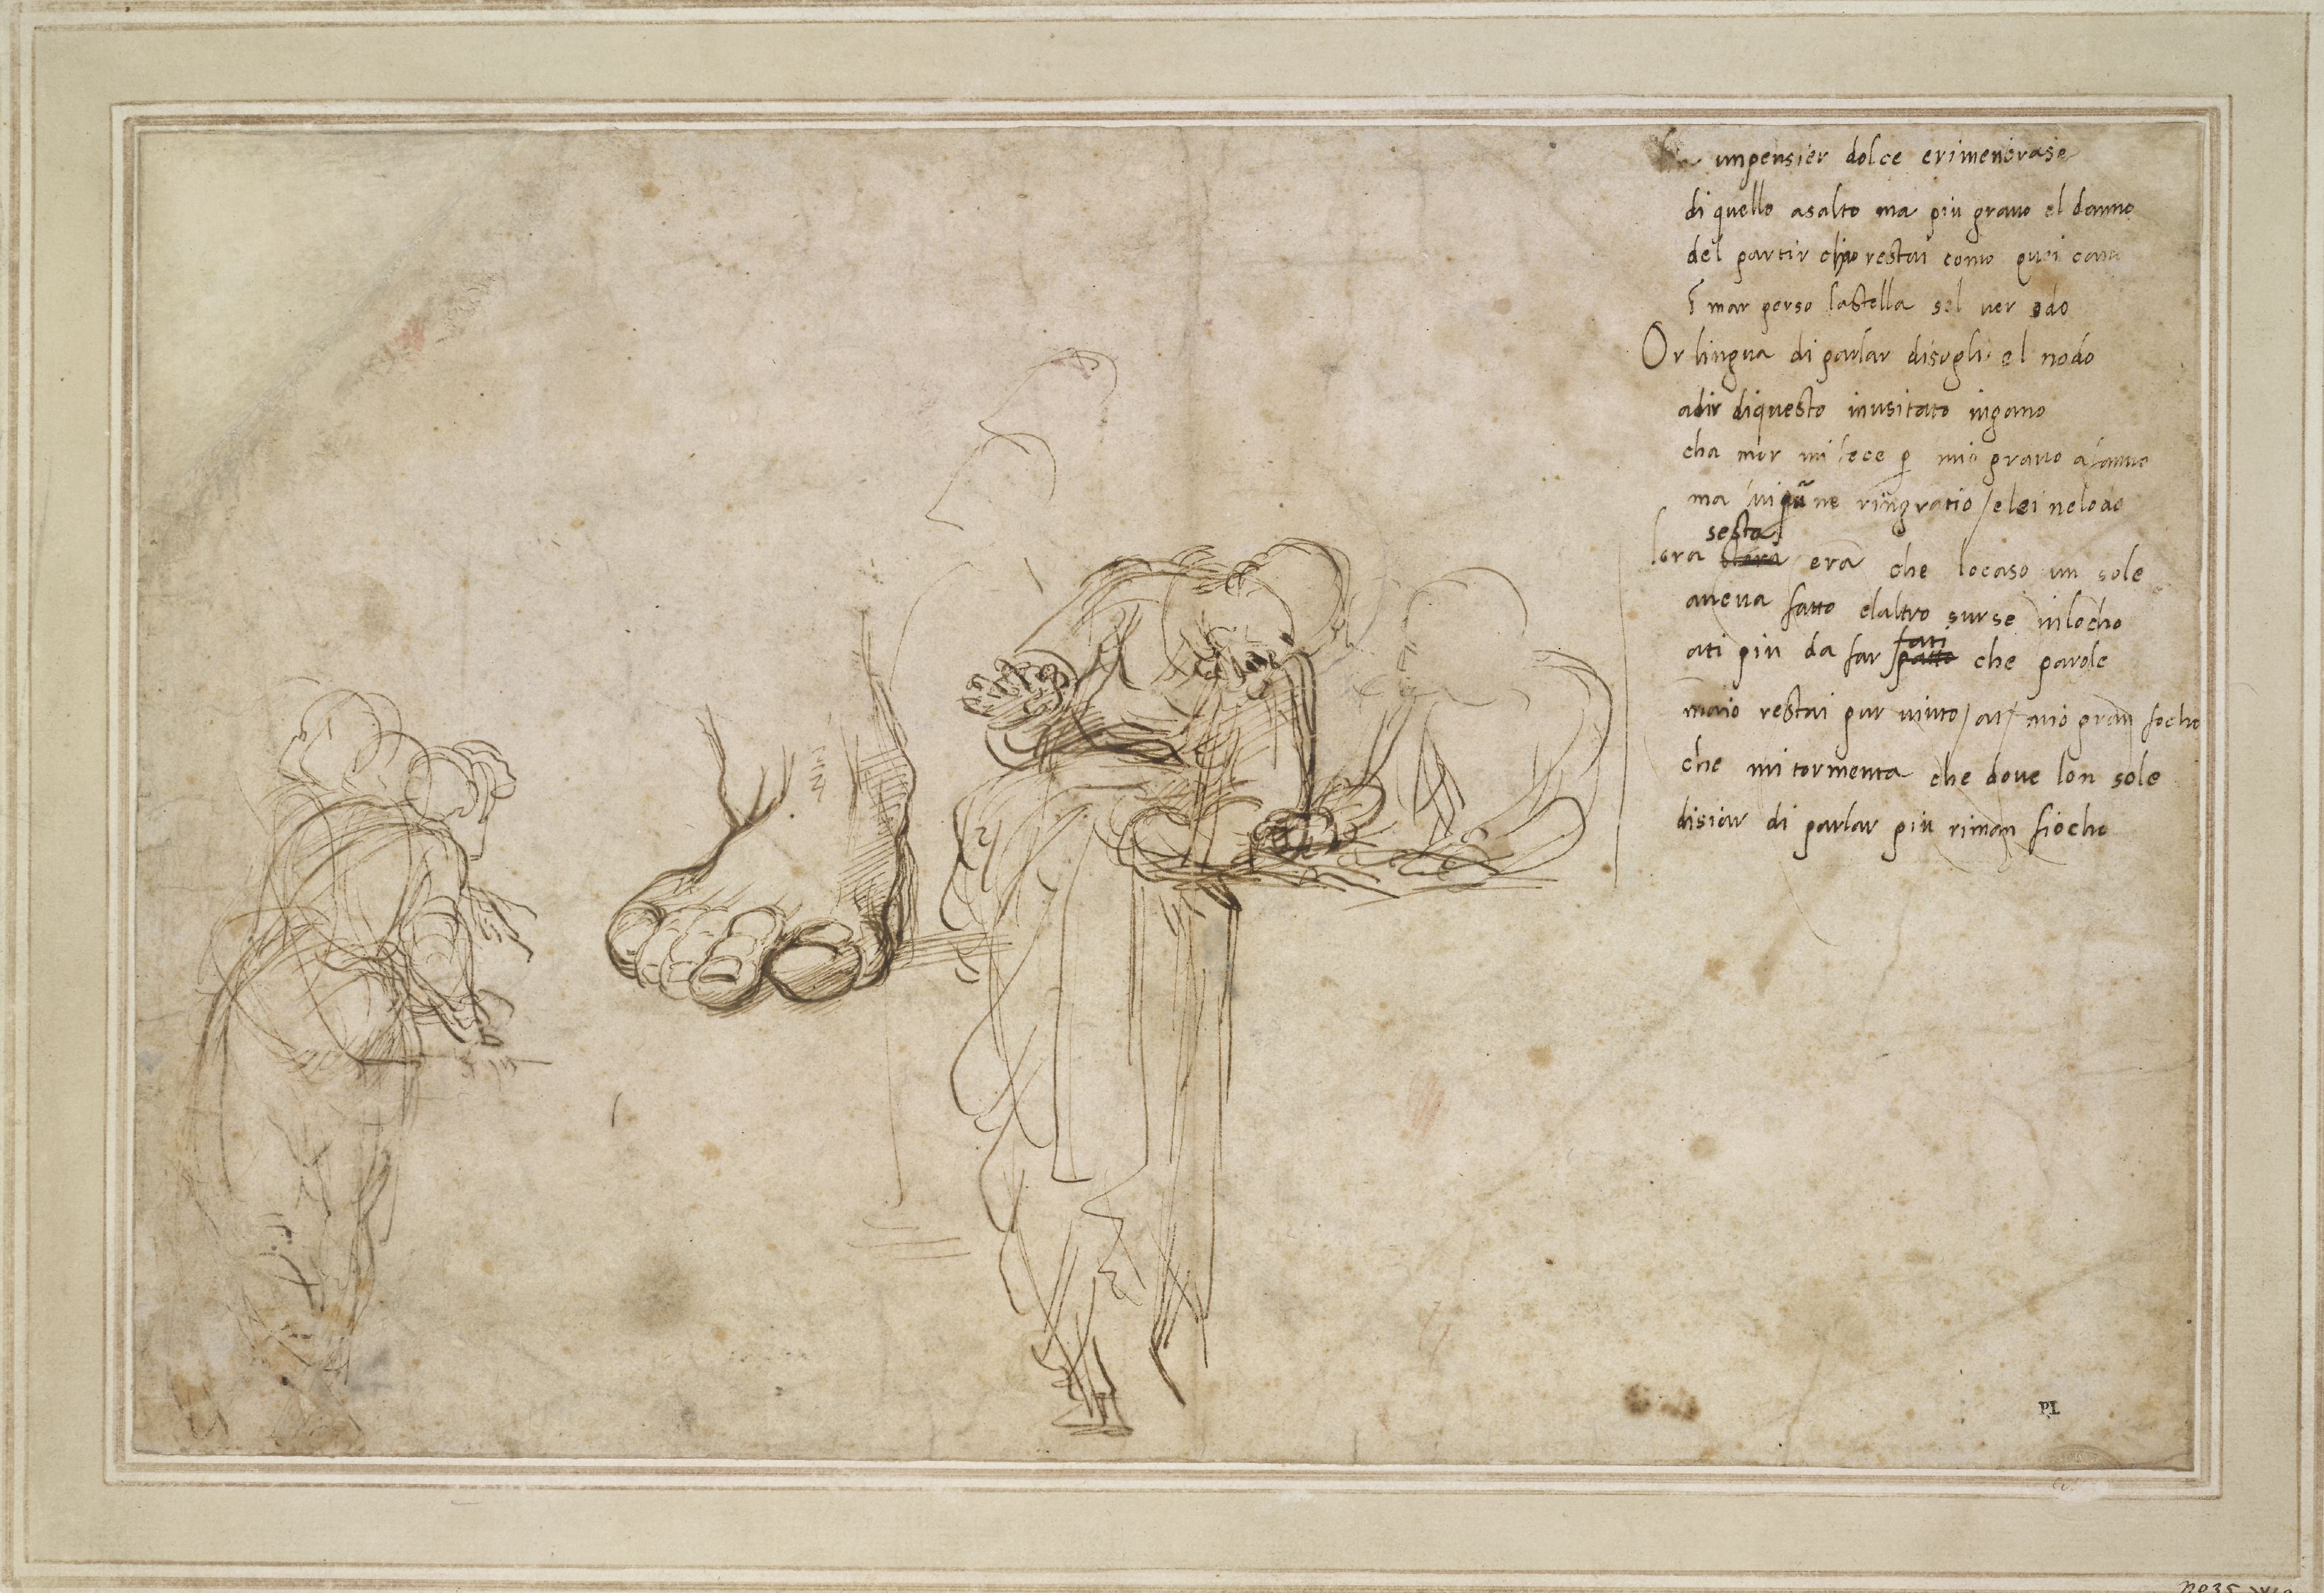 un pensier dolce e rimenbrase
di quello asalto ma piu gravo el danno
del partir chio restai como quei can
ī mar perso la stella sel ver odo
Or lingua di parlar disogli el nodo
a dir di questo inusitato ingano
cha mor mi fece p mio gravo afanno
ma lui pū ne ringratio / e lei ne lodo
sesta
lora era che locaso un sole
aueua fatto e laltro surse in locho
fati
ati piu da far che parole
maio restai pur uinto / al / mio gran focho
che mi tormenta che doue lon sole
disiar di parlar piu riman fiocho
P.L